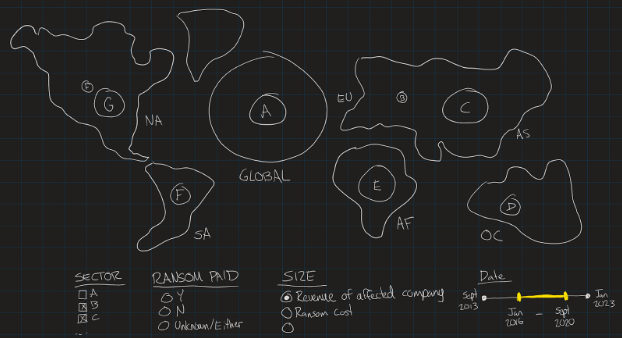 G
NA
A
GLOBAL
EU
B
C
AS
F
SA
E
AF
D
OC
SECTOR
A
B
C
...
RANSOM PAID
Y
N
Unknown/Either
SIZE
Revenue of affected company
Ransom Cost
Date
Sept 2013
Jan 2016
-
Sept 2020
Jan 2023